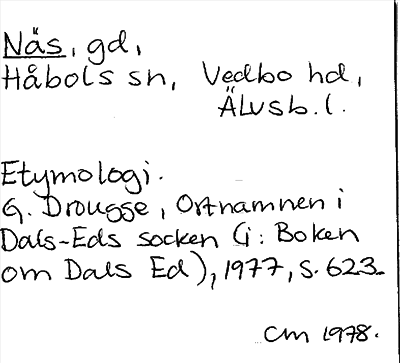 Näs, gd,
Håbols sn, Vedbo hd,
Älvsb. l.
Etymologi.
G. Drougge, Ortnamnen i
Dals-Eds socken (i: Boken
om Dals Ed), 1977, s. 623.
CM 1978.